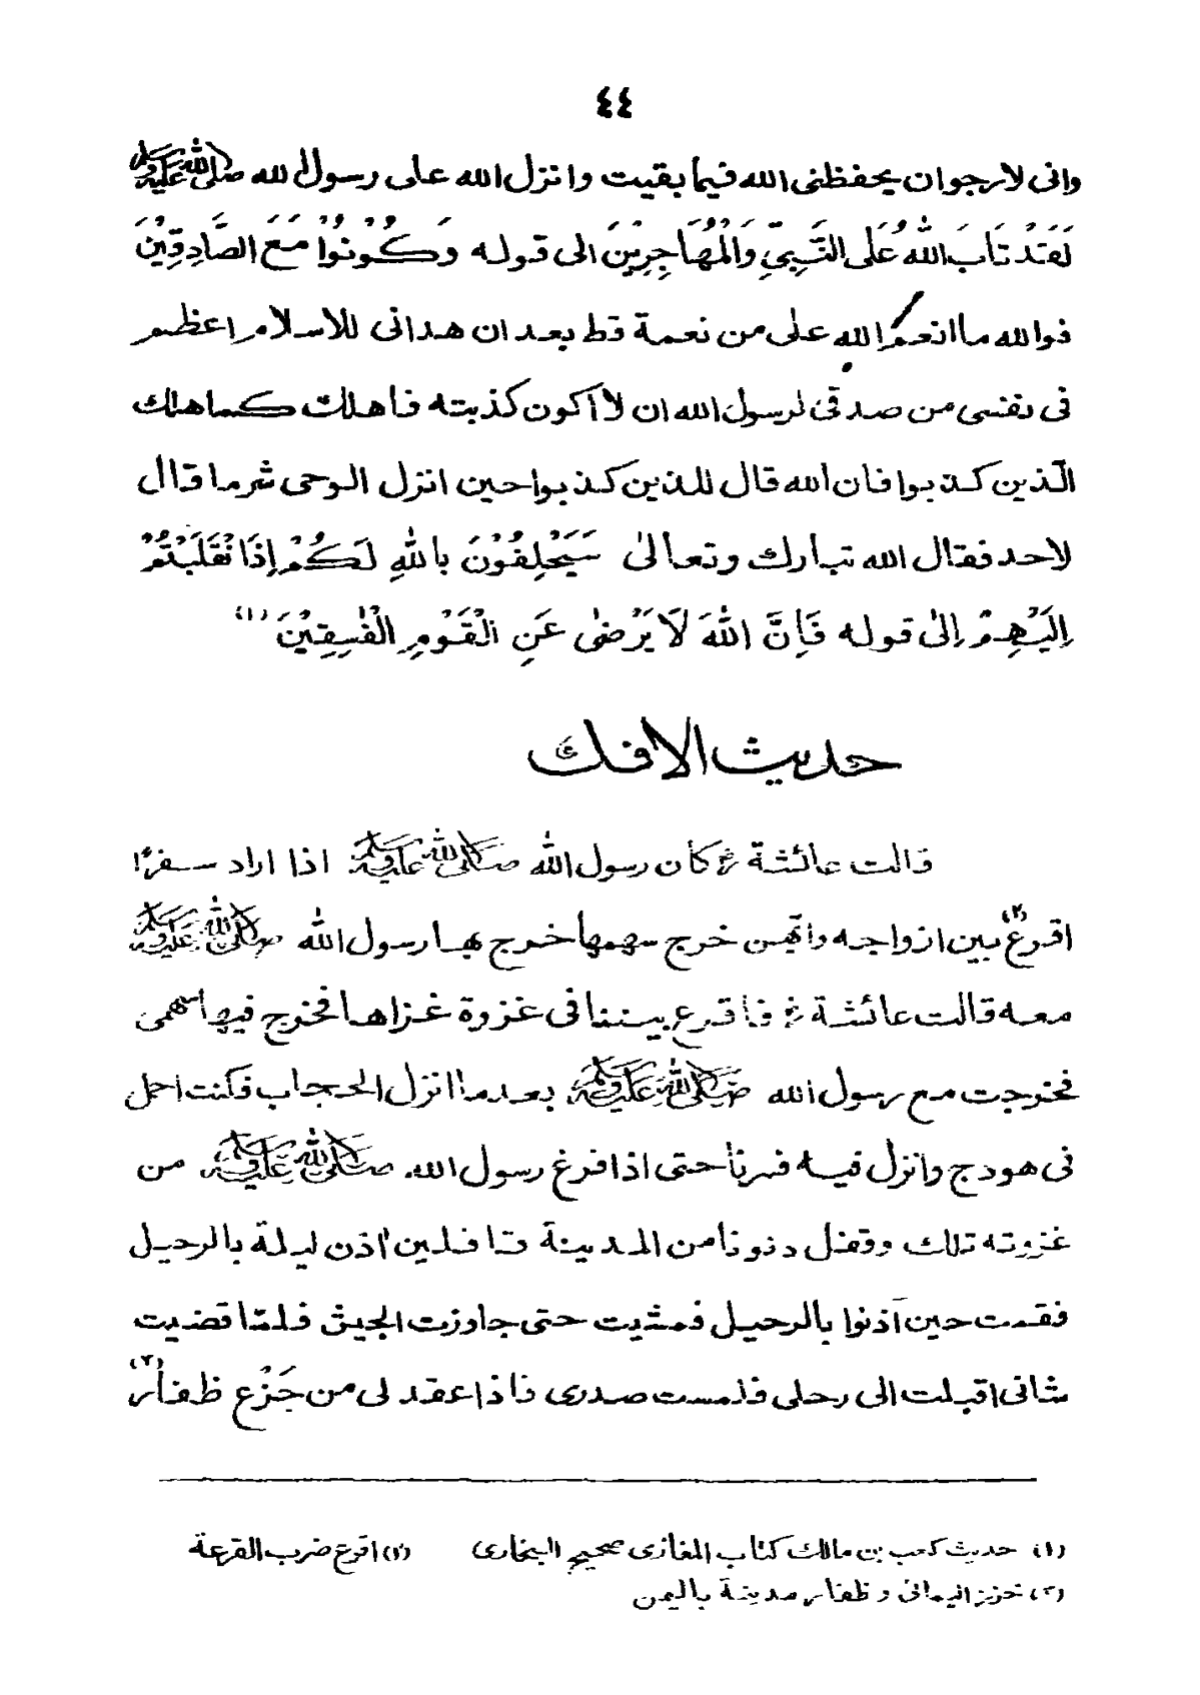 ٤٤
وانى لارجوان يحفظنى الله فيما بقيت وانزل الله على رسول الله صلى الله عليه وسلم
لَقَدْ تَابَ اللهُ عَلَى النَّبِيِّ وَالْمُهَاجِرِيْنَ الى قوله وَكُوْنُوْا مَعَ الصَّادِقِيْنَ
فوالله ما انعم الله على من نعمة قط بعد ان هدانى للاسلام اعظم
فى نفسى من صدقى لرسول الله ان لا اكون كذبته فاهلك كما هلك
الّذين كذبوا فان الله قال للذين كذبوا حين انزل الوحى شر ما قال
لاحد فقال الله تبارك وتعالىٰ سَيَحْلِفُوْنَ بِاللهِ لَكُمْ اِذَا نْقَلَبْتُمْ
اِلَيْهِمْ اِلىٰ قوله فَاِنَّ اللهَ لَا يَرْضىٰ عَنِ الْقَوْمِ الْفٰسِقِيْنَ (١)
حديث الافك
قالت عائشة رض كان رسول الله صلى الله عليه وسلم اذا اراد سفرًا
اقرع(٢) بين ازواجه وايّهن خرج سهمها خرج بها رسول الله صلى الله عليه وسلم
معه قالت عائشة رض فاقرع بيننا فى غزوة غزاها فخرج فيها سهمى
فخرجت مع رسول الله صلى الله عليه وسلم بعد ما انزل الحجاب فكنت احمل
فى هودج وانزل فيه فسرنا حتى اذا فرغ رسول الله صلى الله عليه وسلم من
غزوته تلك وقفل دنونا من المدينة قافلين اذن ليلة بالرحيل
فقمت حين آذنوا بالرحيل فمشيت حتى جاوزت الجيش فلمّا قضيت
شانى اقبلت الى رحلى فلمست صدرى فاذا عقد لى من جَزْع ظفار(٣)
(١) حديث كعب بن مالك كتاب المغازى صحيح البخارى (٢) اقرع ضرب القرعة
(٣) خرز اليمانى وظفار مدينة باليمن